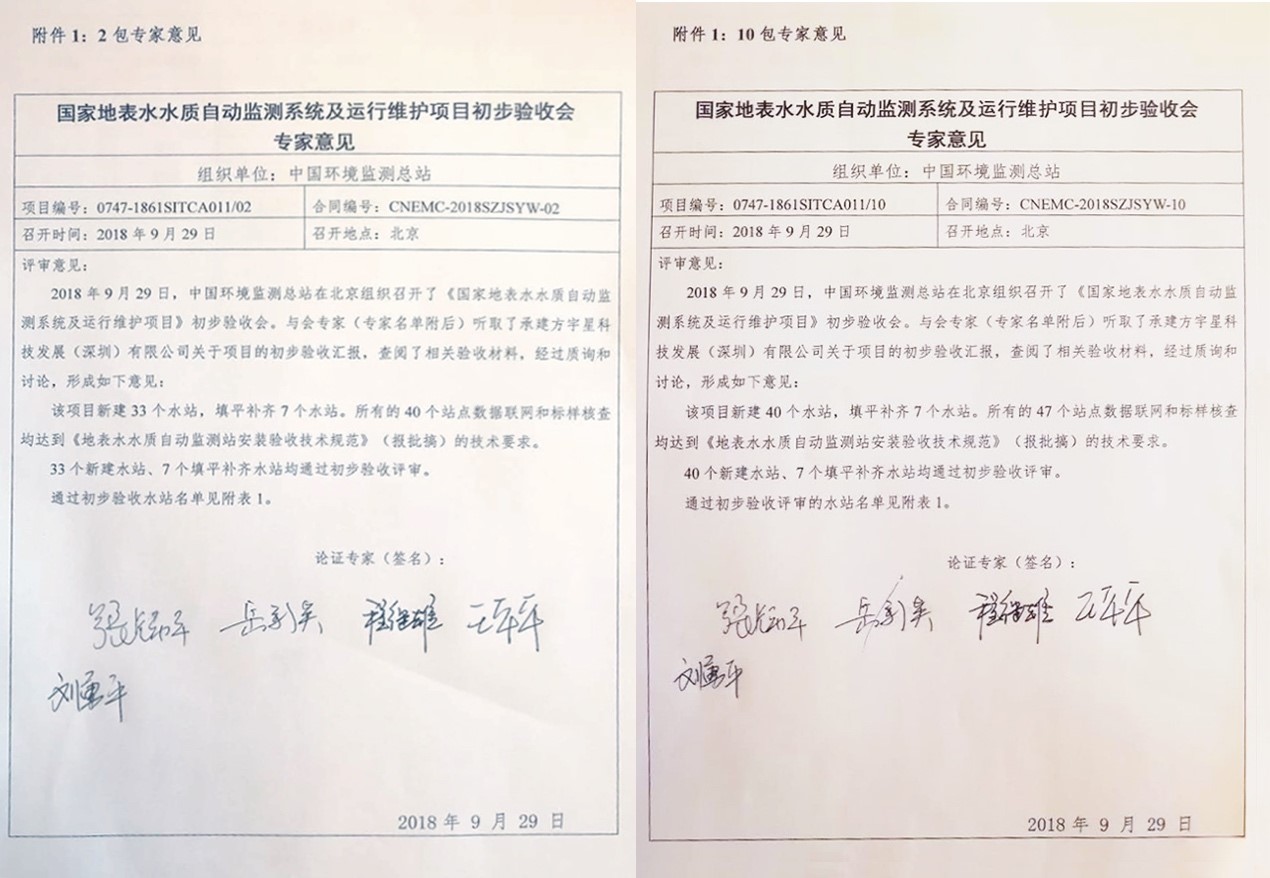 附件1：2包专家意见
国家地表水水质自动监测系统及运行维护项目初步验收会
专家意见
组织单位：中国环境监测总站
项目编号：0747-1861SITCA011/02
合同编号：CNEMC-2018SZJSYW-02
召开时间：2018年9月29日
召开地点：北京
评审意见：
2018年9月29日，中国环境监测总站在北京组织召开了《国家地表水水质自动监
测系统及运行维护项目》初步验收会。与会专家（专家名单附后）听取了承建方宇星科
技发展（深圳）有限公司关于项目的初步验收汇报，查阅了相关验收材料，经过质询和
讨论，形成如下意见：
该项目新建33个水站，填平补齐7个水站。所有的40个站点数据联网和标样核查
均达到《地表水水质自动监测站安装验收技术规范》（报批搞）的技术要求。
33个新建水站、7个填平补齐水站均通过初步验收评审。
通过初步验收水站名单见附表1。
论证专家（签名）：
岳 程继雄 王军平
刘勇平
2018年9月29日
附件1：10包专家意见
国家地表水水质自动监测系统及运行维护项目初步验收会
专家意见
组织单位：中国环境监测总站
项目编号：0747-1861SITCA011/10
合同编号：CNEMC-2018SZJSYW-10
召开时间：2018年9月29日
召开地点：北京
评审意见：
2018年9月29日，中国环境监测总站在北京组织召开了《国家地表水水质自动监
测系统及运行维护项目》初步验收会。与会专家（专家名单附后）听取了承建方宇星科
技发展（深圳）有限公司关于项目的初步验收汇报，查阅了相关验收材料，经过质询和
讨论，形成如下意见：
该项目新建40个水站，填平补齐7个水站。所有的47个站点数据联网和标样核查
均达到《地表水水质自动监测站安装验收技术规范》（报批搞）的技术要求。
40个新建水站、7个填平补齐水站均通过初步验收评审。
通过初步验收评审的水站名单见附表1。
论证专家（签名）：
岳 程继雄 王军平
刘勇平
2018年9月29日